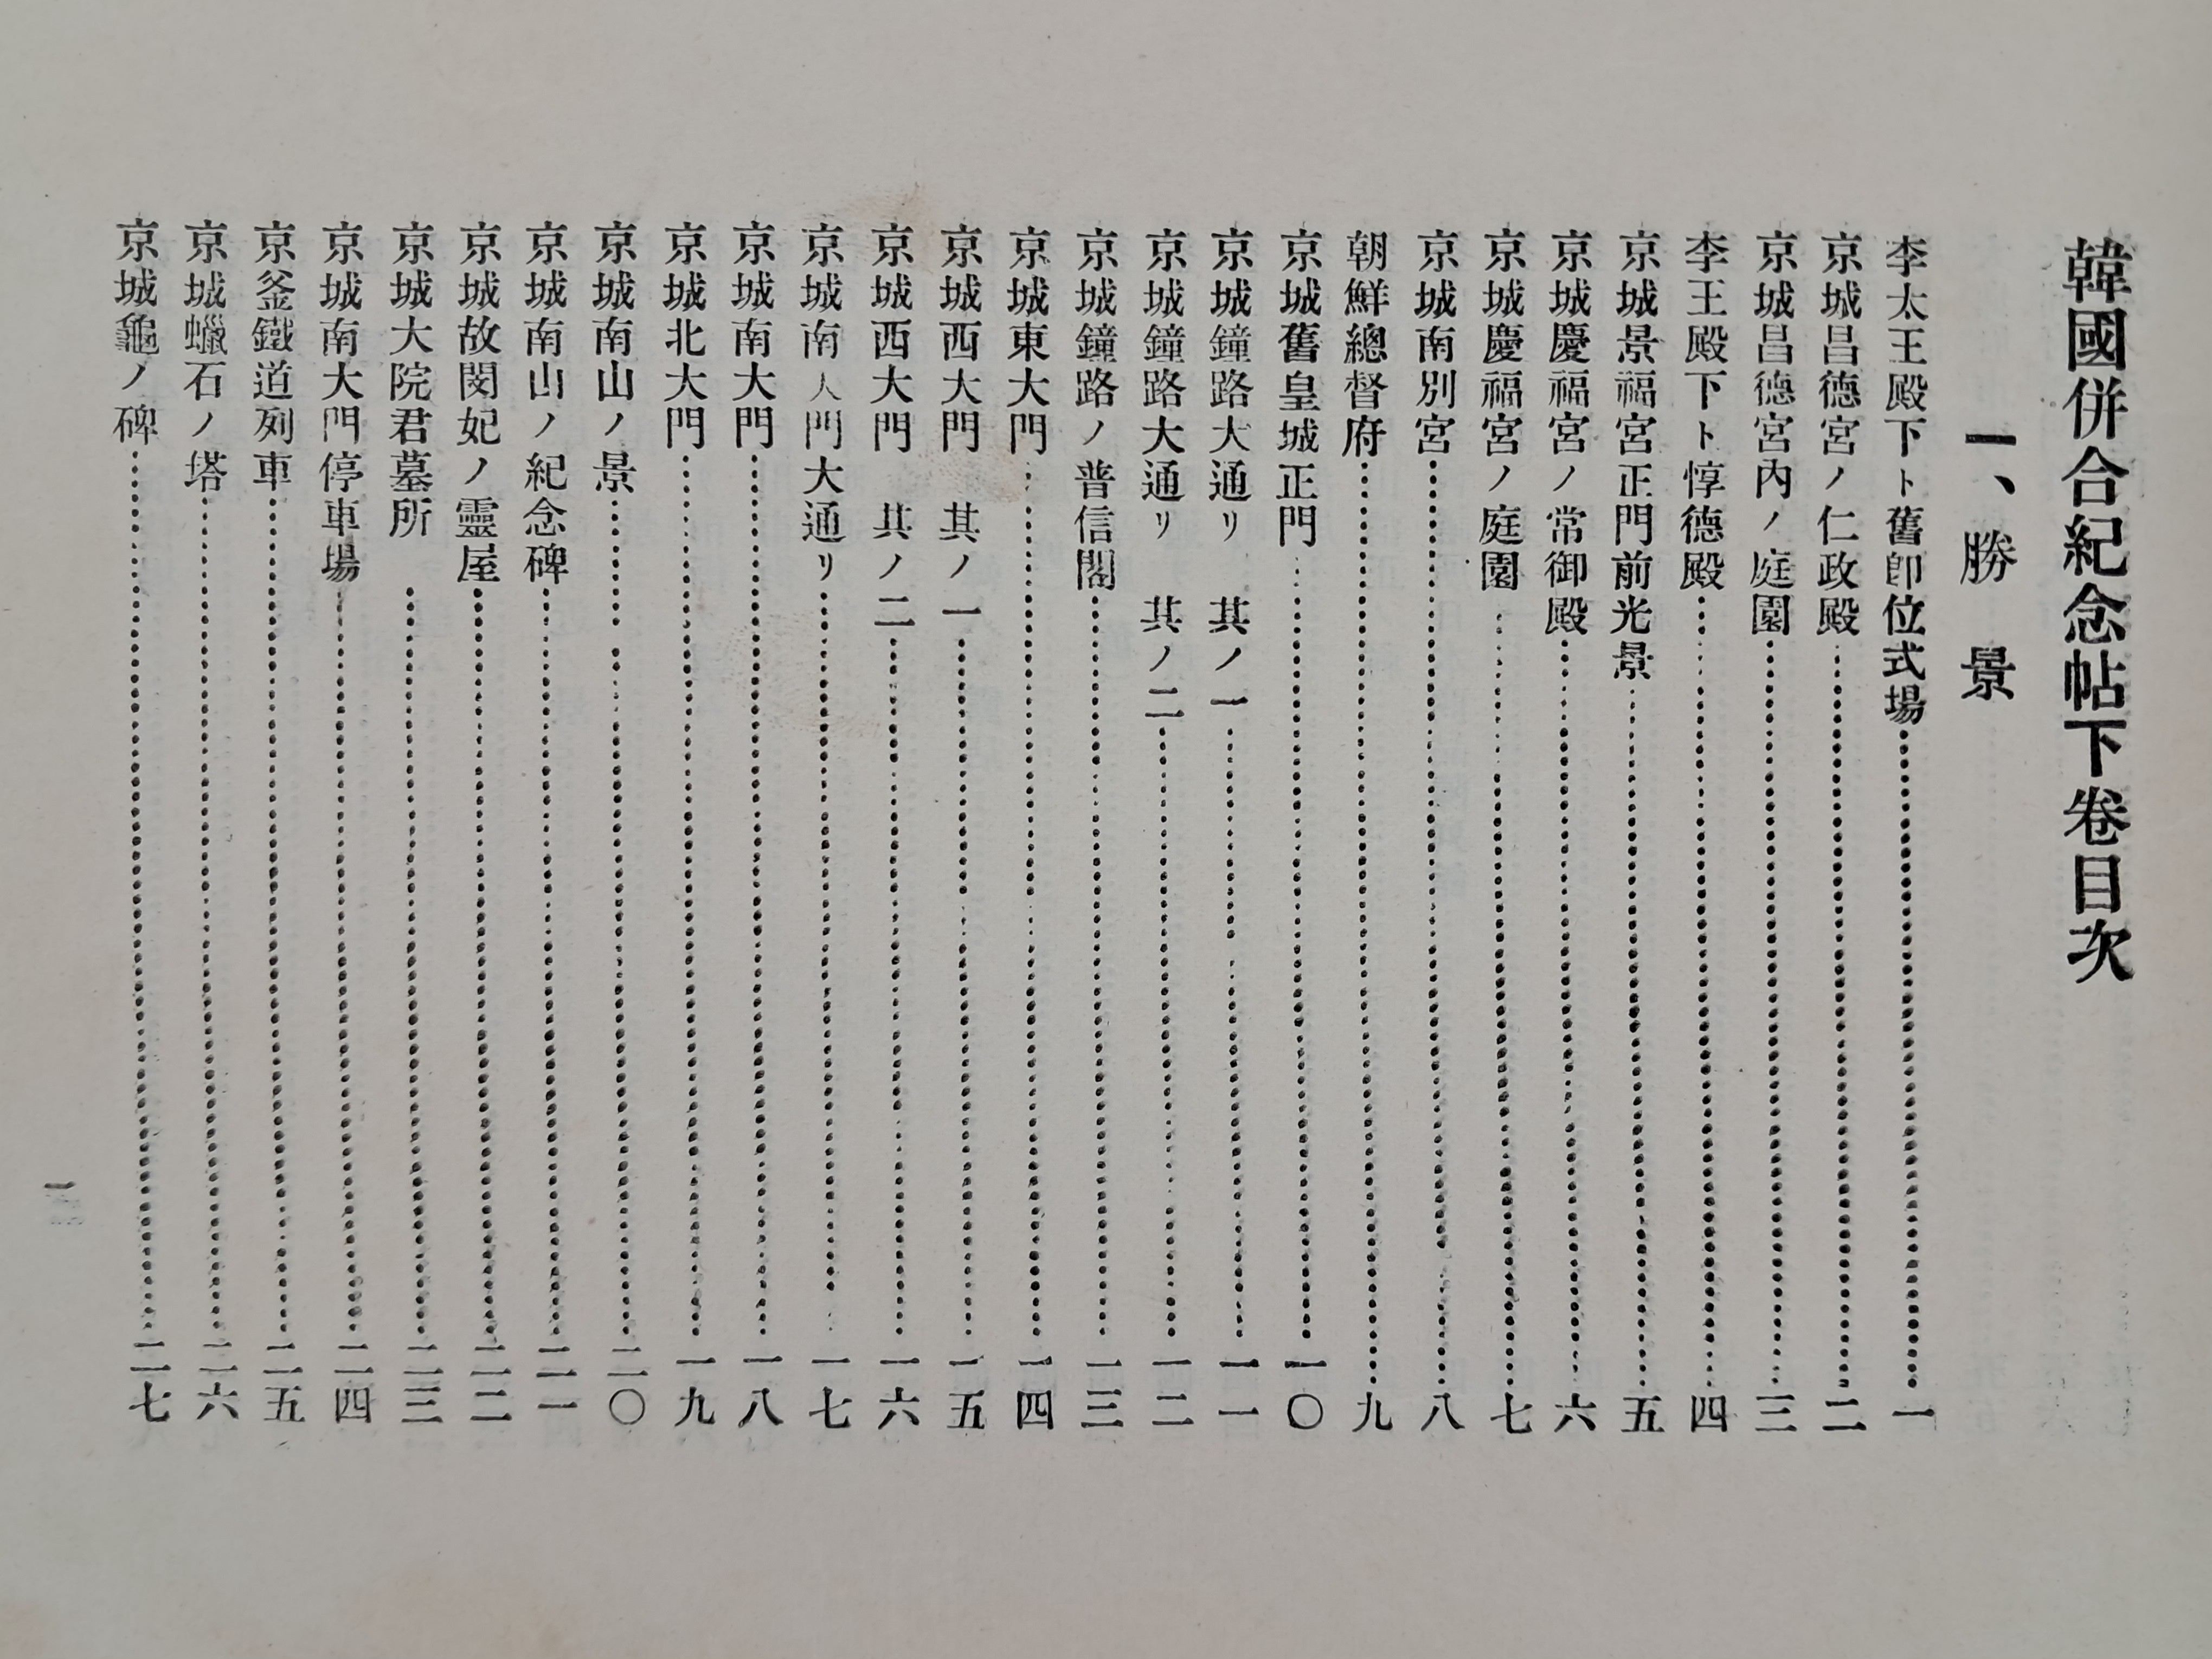 韓國併合紀念帖下卷目次
一、勝景
李太王殿下ト舊卽位式場……一
京城昌德宮ノ仁政殿……二
京城昌德宮內ノ庭園……三
李王殿下ト惇德殿……四
京城景福宮正門前光景……五
京城慶福宮ノ常御殿……六
京城慶福宮ノ庭園……七
京城南別宮……八
朝鮮總督府……九
京城舊皇城正門……一〇
京城鐘路大通リ 其ノ一……一一
京城鐘路大通リ 其ノ二……一二
京城鐘路ノ普信閣……一三
京城東大門……一四
京城西大門 其ノ一……一五
京城西大門 其ノ二……一六
京城南大門大通リ……一七
京城南大門……一八
京城北大門……一九
京城南山ノ景……二〇
京城南山ノ紀念碑……二一
京城故閔妃ノ靈屋……二二
京城大院君墓所……二三
京城南大門停車場……二四
京釜鐵道列車……二五
京城蠟石ノ塔……二六
京城龜ノ碑……二七
一